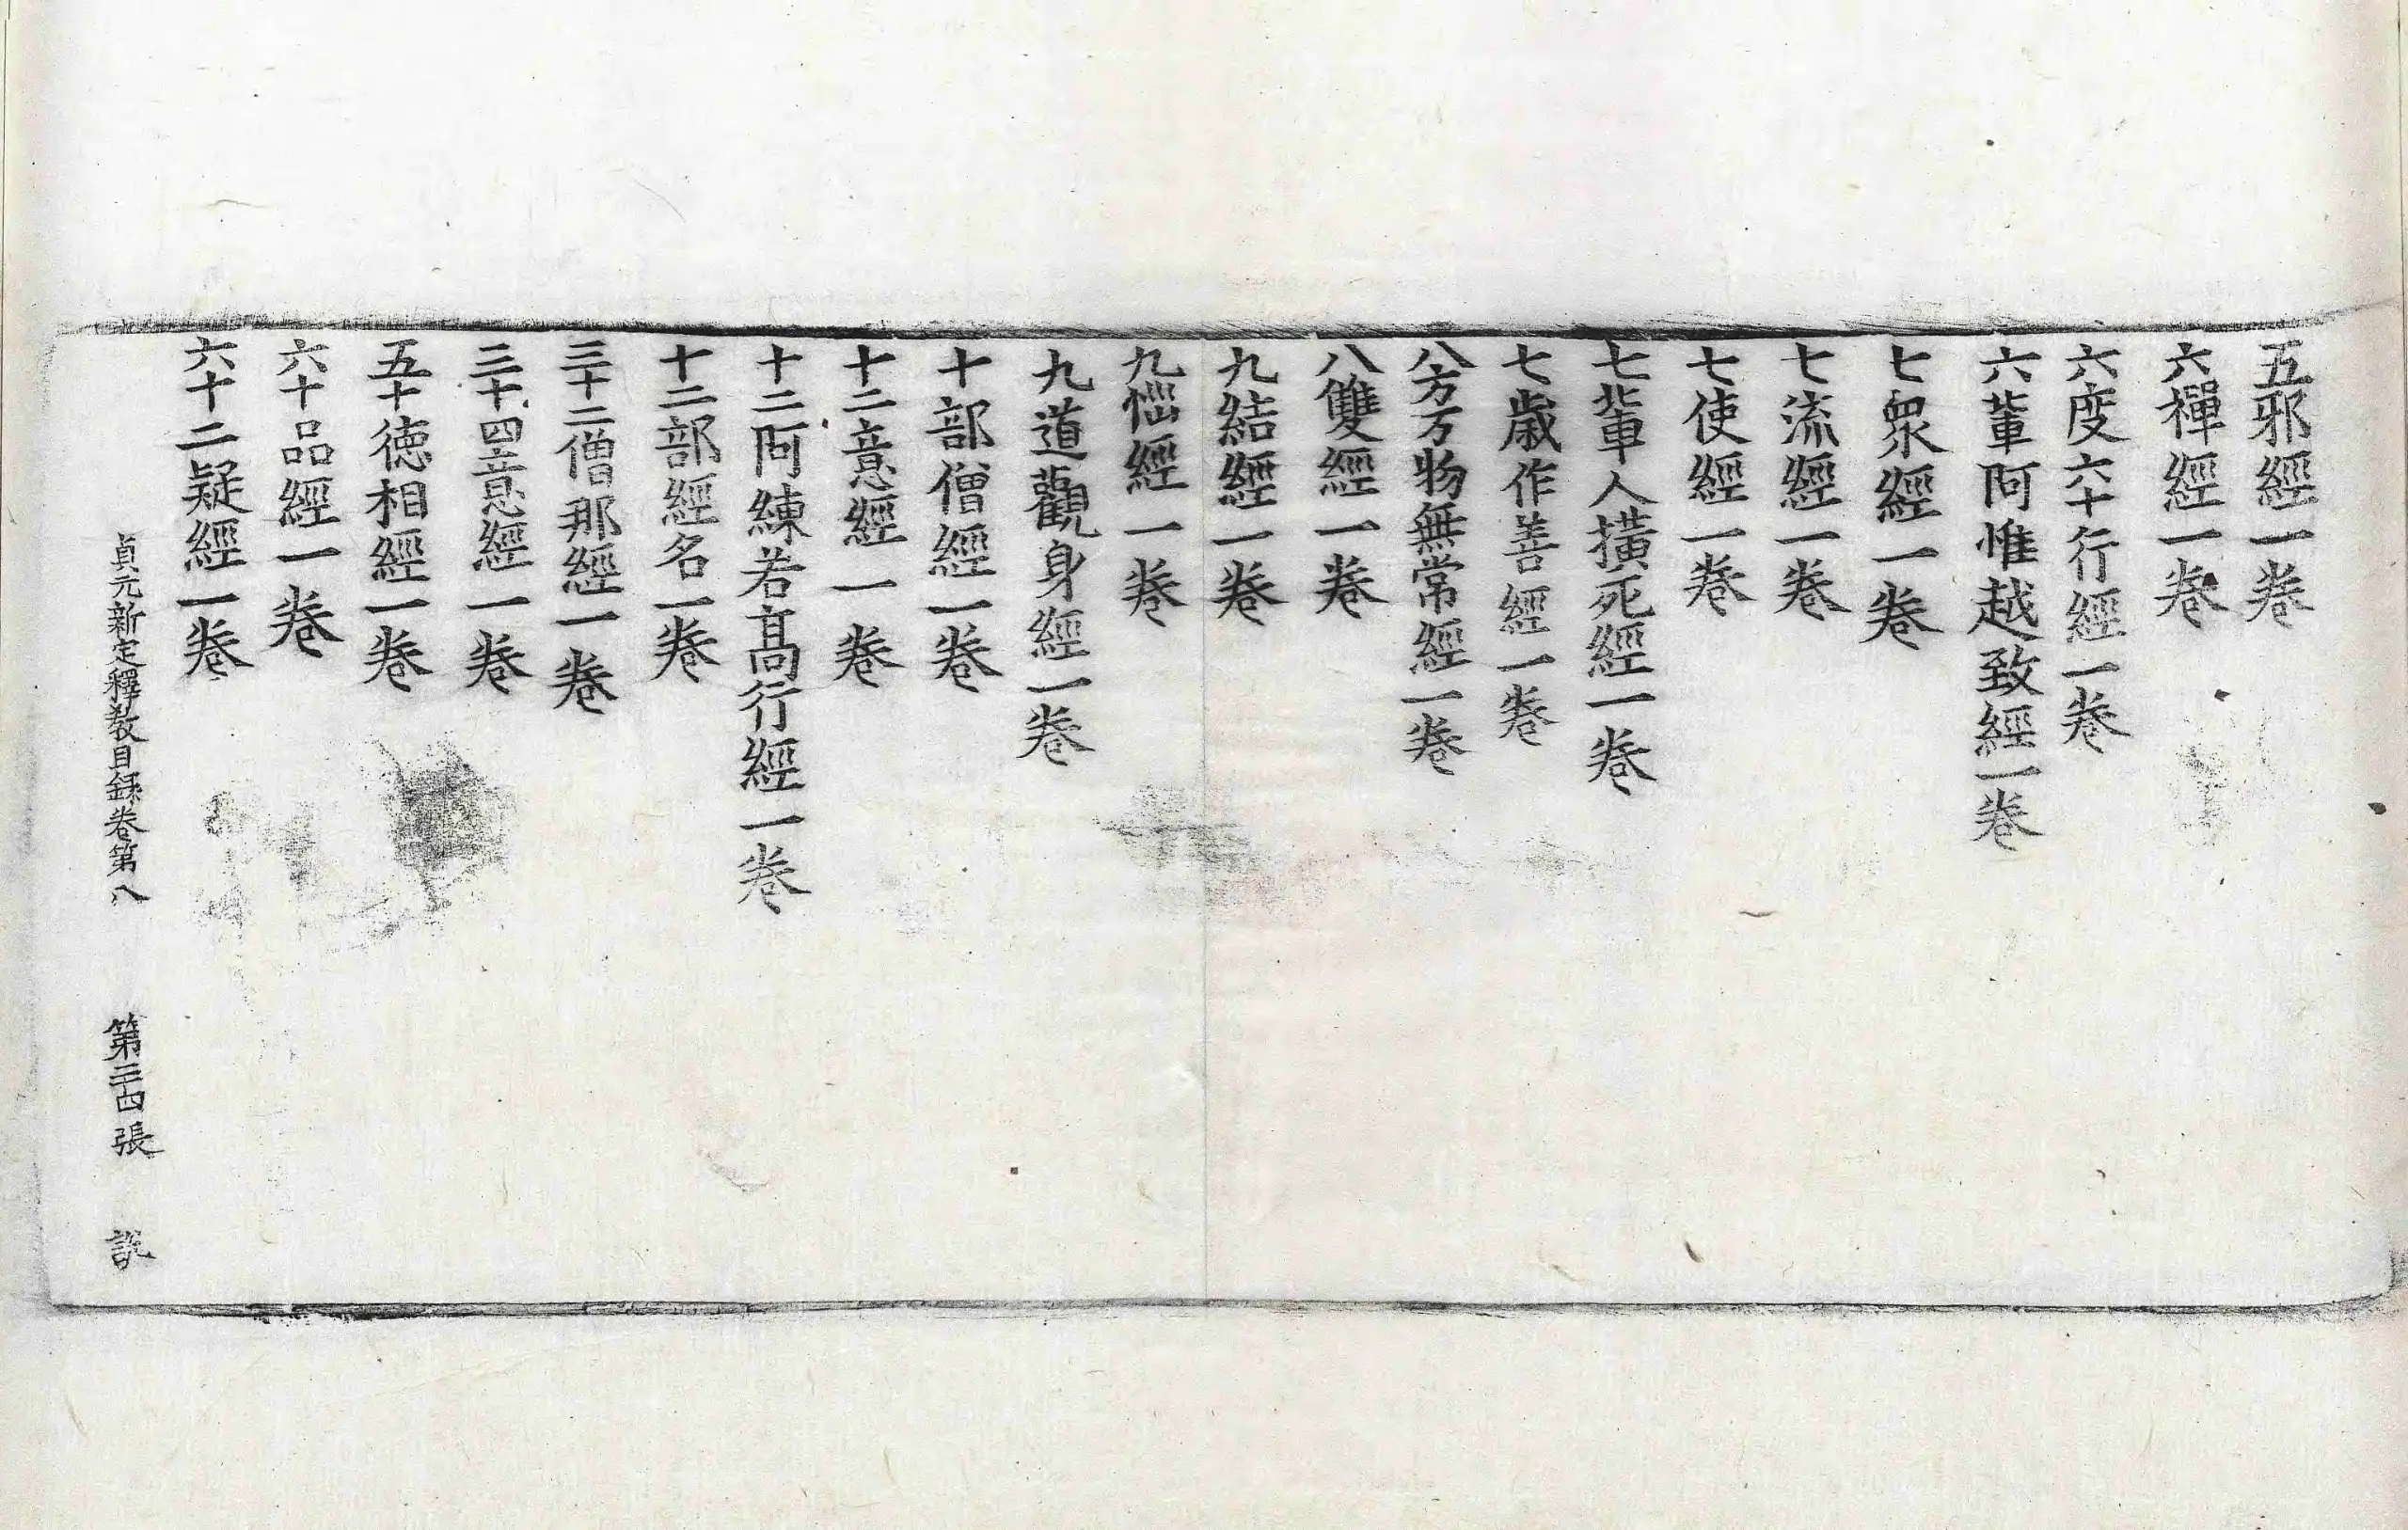 五邪經一卷
六禪經一卷
六度六十行經一卷
六輩阿惟越致經一卷
七衆經一卷
七流經一卷
七使經一卷
七輩人橫死經一卷
七歲作善經一卷
八方万物無常經一卷
八雙經一卷
九結經一卷
九惱經一卷
九道觀身經一卷
十部僧經一卷
十二意經一卷
十二阿練若高行經一卷
十二部經名一卷
三十二僧那經一卷
三十四意經一卷
五十德相經一卷
六十品經一卷
六十二疑經一卷
貞元新定釋教目録卷第八 第三四張 説